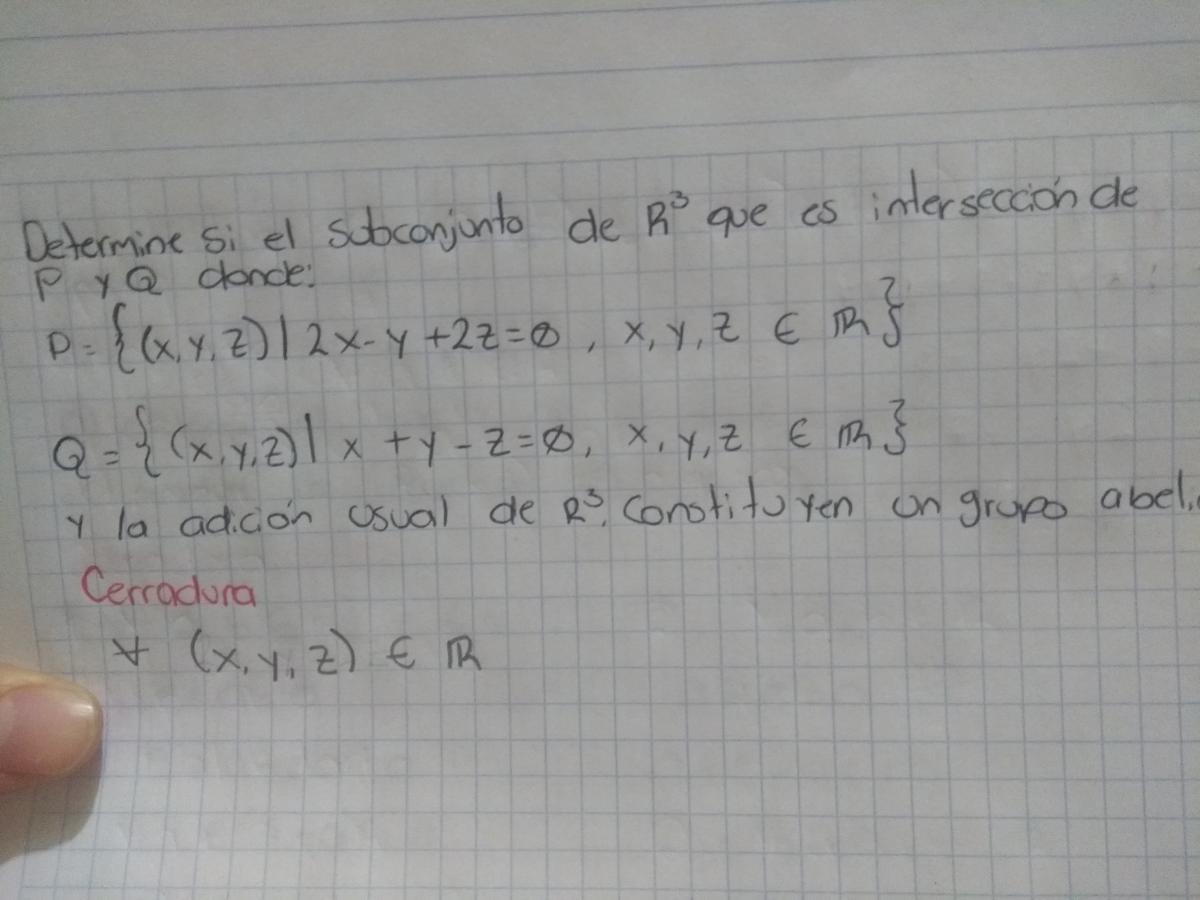 Determine si el subconjunto de R³ que es intersección de
P y Q donde:
P = {(x, y, z) | 2x - y + 2z = 0, x, y, z ∈ ℝ}
Q = {(x, y, z) | x + y - z = 0, x, y, z ∈ ℝ}
y la adición usual de R³. Constituyen un grupo
Cerradura
∀ (x, y, z) ∈ ℝ